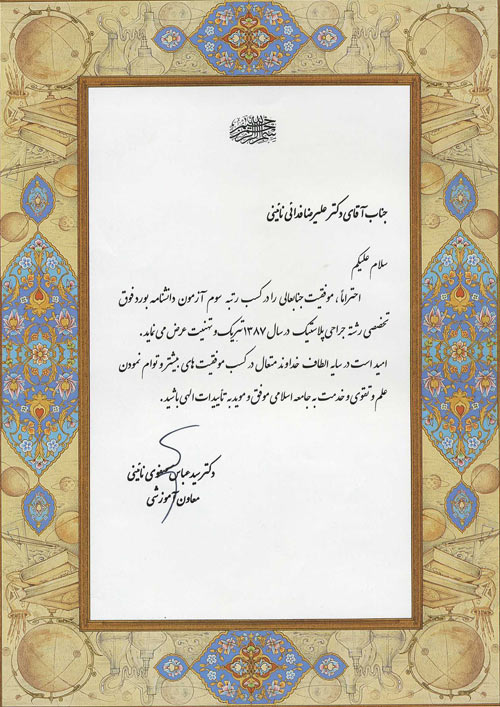 جناب آقای دکتر علیرضا فدائی نائینی
سلام علیکم
احتراماً، موفقیت جنابعالی را در کسب رتبه سوم آزمون دانشنامه بورد فوق
تخصصی رشته جراحی پلاستیک در سال ۱۳۸۷ تبریک و تهنیت عرض می نماید.
امید است در سایه الطاف خداوند متعال در کسب موفقیت های بیشتر و توام نمودن
علم و تقوی و خدمت به جامعه اسلامی موفق و موید به تأییدات الهی باشید.
دکتر سید عباس نائینی
معاون آموزشی